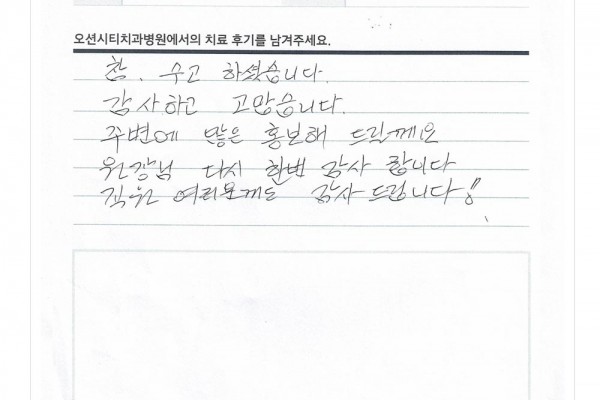 오션시티치과병원에서의 치료 후기를 남겨주세요.
참. 수고 하셨습니다.
감사하고 고맙습니다.
주변에 많은 홍보해 드릴께요
원장님 다시 한번 감사 합니다
직원 여러분께도 감사 드립니다!!